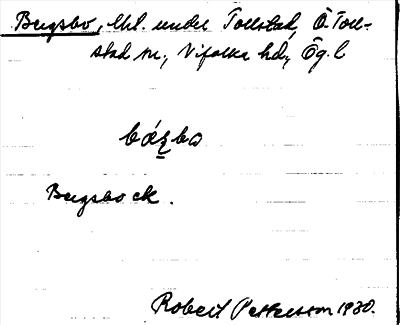 Bergsbo, lhl. under Tollstad, Ö. Toll-
stad sn., Vifolka hd., Ög. l
bǽrbo
Bergsbo ck.
Robert Pettersson 1930.